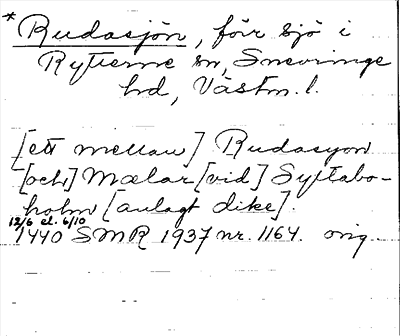 * Rudasjön, förr sjö i
Rytterne sn, Snevringe
hd, Västm. l.
[ett mellan] Rudasyon
[och] Mælar [vid] Syltabo-
holm [anlagt dike].
12/6 el. 6/10
1440 SMR 1937 nr. 1164. orig.